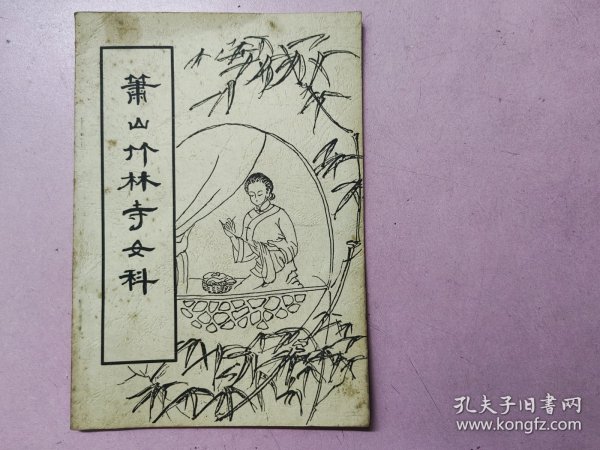 萧山竹林寺女科
孔夫子旧书网
www.kongfz.com